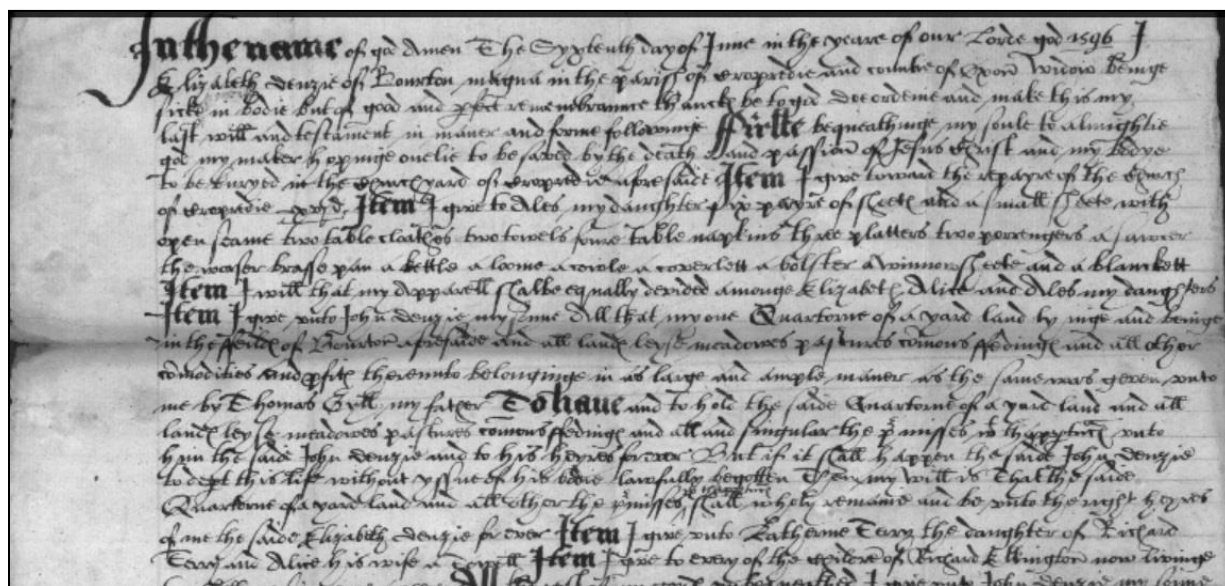 In the name of god Amen The Syxtenth day of June in the yeare of our Lorde god 1596 I
Elizabeth Denzie of Bourton magna in the parish of Cropredie and countie of Oxon widow beinge
sicke in bodie but of good and pfect remembraunce thanckes be to god doe ordeine and make this my
last will and testament in maner and forme followinge Firste bequeathinge my soule to almightie
god my maker hopinge onelie to be saved by the death and passion of Jesus Christ and my bodye
to be buryed in the Churchyard of Cropredie aforesaide Item I give toward the repayre of the Church
of Cropredie Item I give to Ales my daughter six payre of sheetes and a small sheete with
open seame two table cloathes two towels foure table napkins three platters two porrengers a sawcer
the worser brasse pan a kettle a loome a cowle a coverlett a bolster a winnowsheete and a blanckett
Item I will that my Apparell shalbe equally devided amonge Elizabeth Alice and Ales my daughters
Item I give unto John Denzie my sonne All that my one Quarterne of a yard land lyinge and beinge
in the feildes of Bourton aforesaide and all landes leyse meadowes pastures comons feedinges and all other
comodities and pfites thereunto belonginge in as large and ample maner as the same was geven unto
me by Thomas Gyll my father To have and to hold the saide Quarterne of a yard land and all
landes leyse meadowes pastures comons feedinges and all and singular the pmisses wth thapptences unto
him the saide John Denzie and to his heyres for ever But if it shall happen the saide John Denzie
to dept this life without yssue of his bodie lawfully begotten Then my will is That the saide
Quarterne of a yard land and all other the pmisses shall wholy remaine and be unto the right heyres
of me the saide Elizabeth Denzie for ever Item I give unto Katherine Terry the daughter of Richard
Terry and Alice his wife a Item I give to every of the children of Richard Ellington now livinge
All I give unto John Denzie my sonne